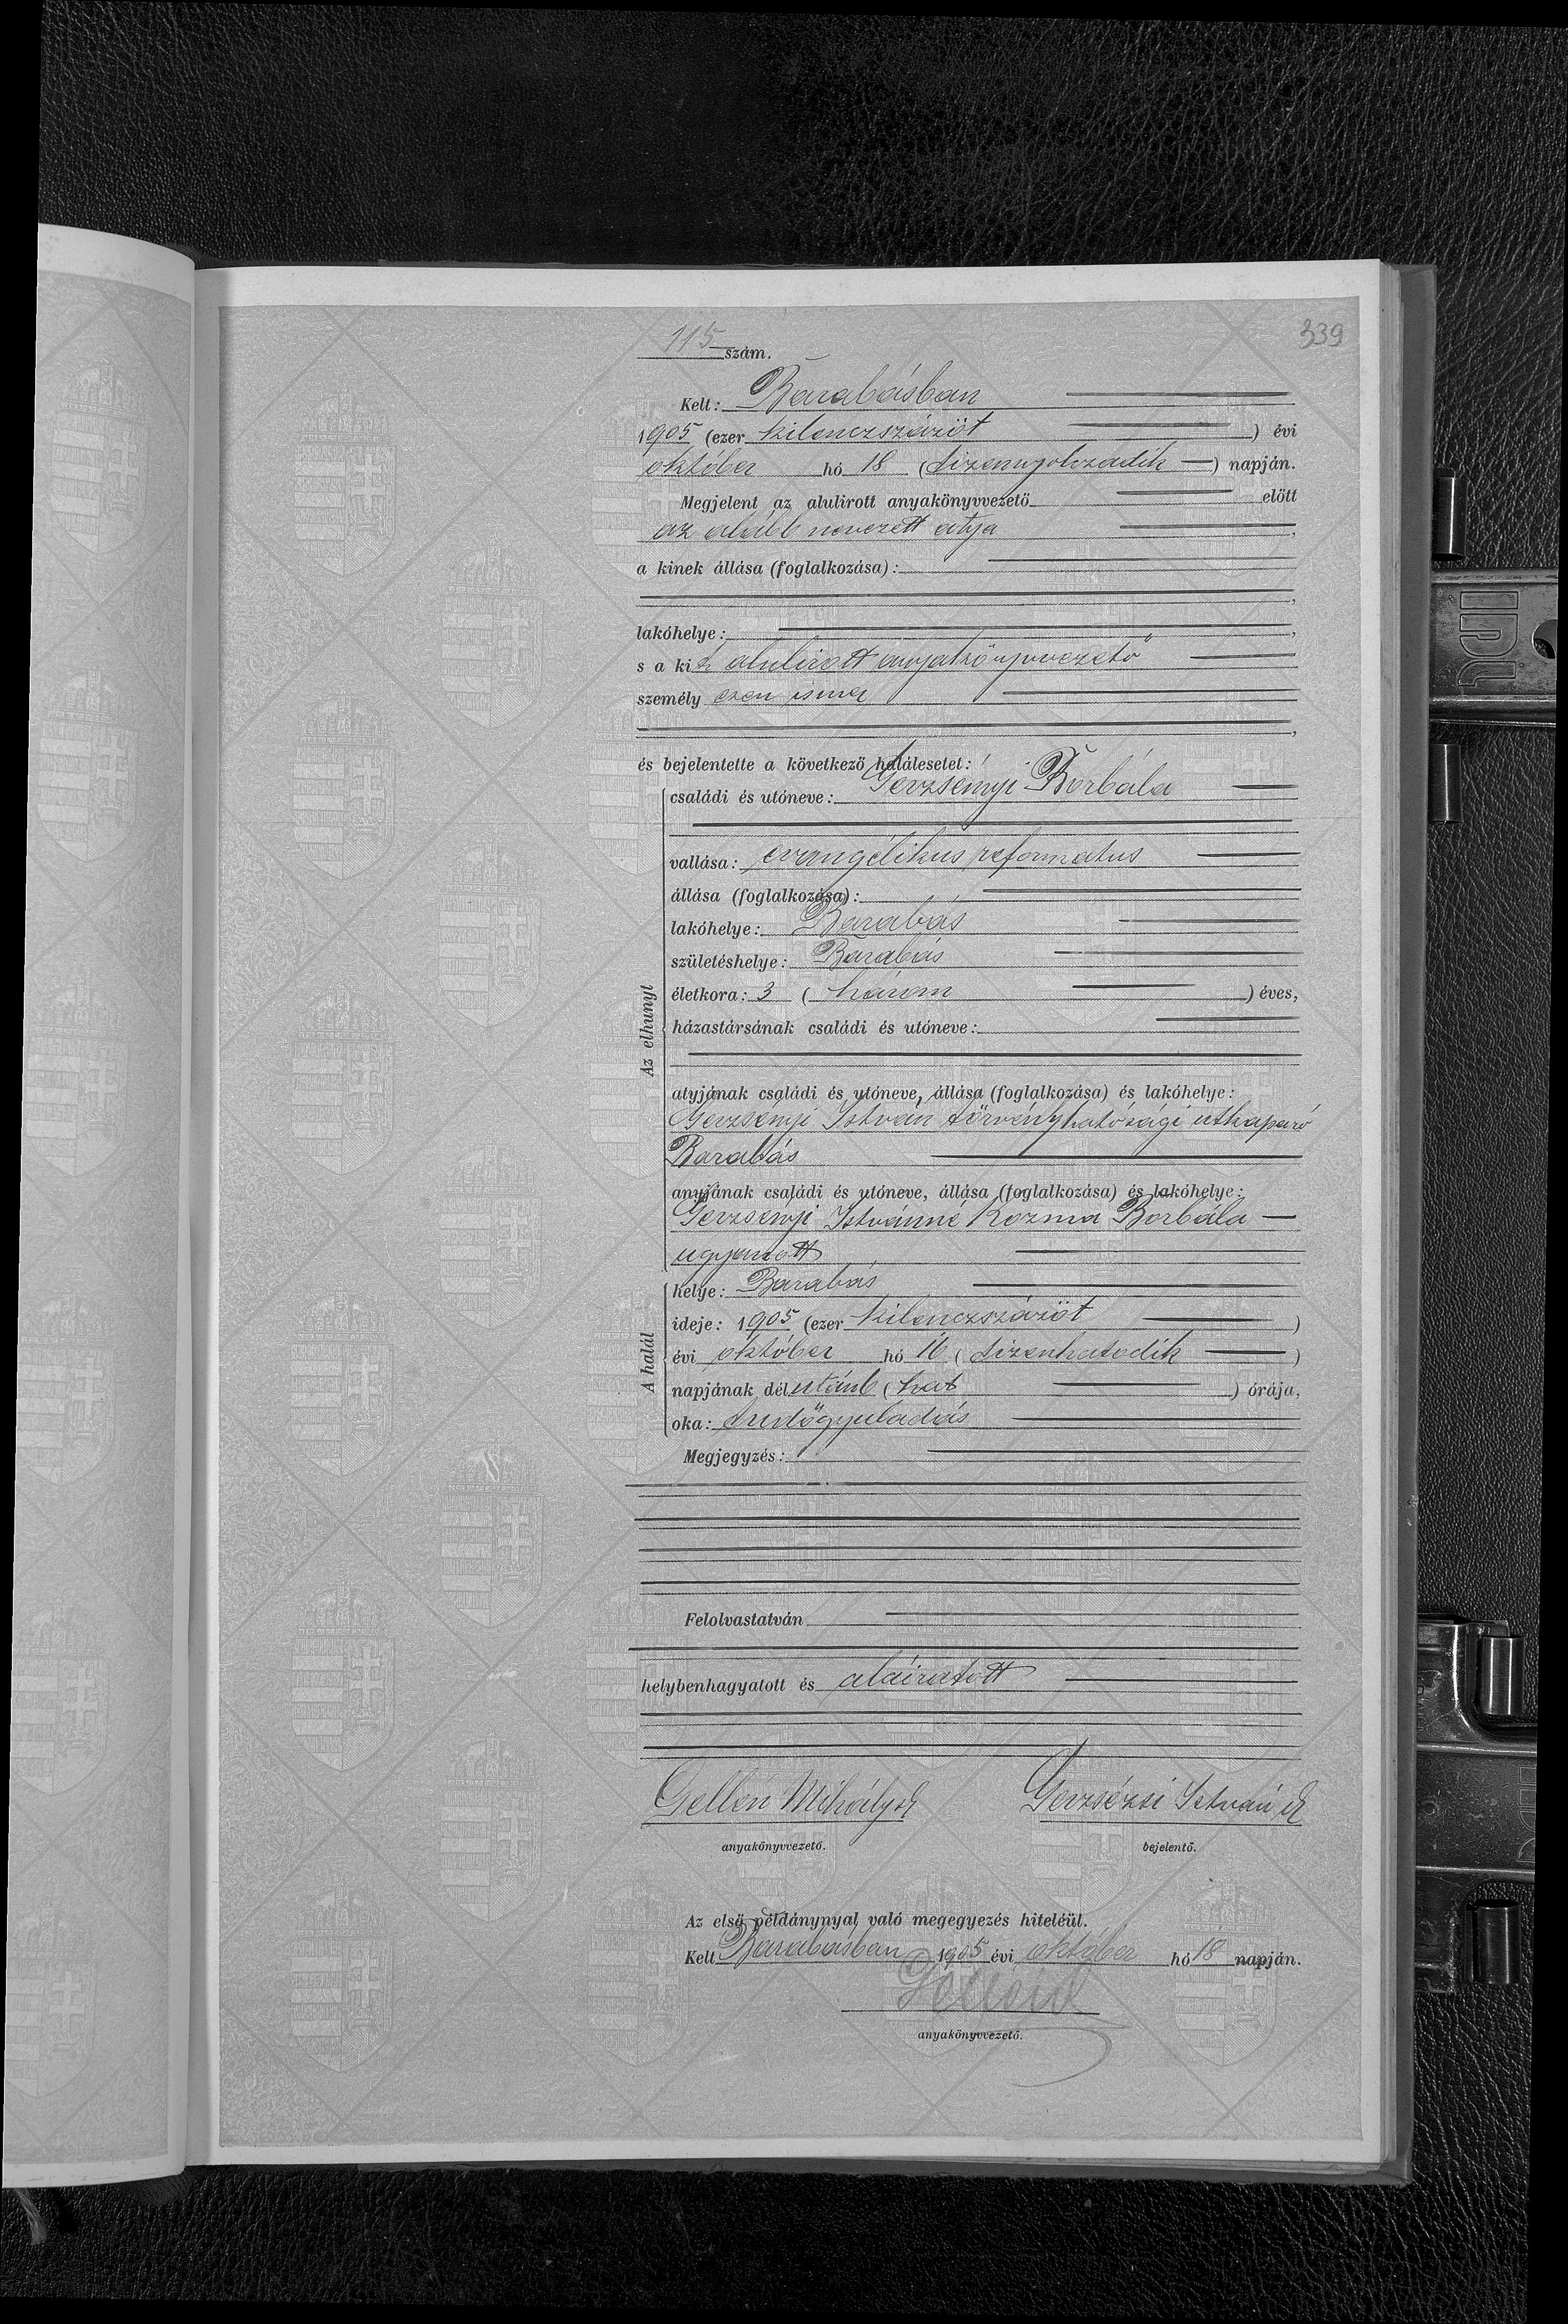 115 szám.
339
Kelt: Barabásban
1905 (ezer kilenczszázöt ) évi
október hó 18 (tizennyolczadik ) napján.
Megjelent az alulirott anyakönyvvezető előtt
az alább nevezett atyja ,
a kinek állása (foglalkozása):
,
lakóhelye: ,
s a kit alulirott anyakönyvvezető
személy esen ismer
,
és bejelentette a következő halálesetet:
Az elhunyt
családi és utóneve: Gerzsenyi Borbála
vallása: evangélikus reformatus
állása (foglalkozása):
lakóhelye: Barabás
születéshelye: Barabás
életkora: 3 ( három ) éves,
házastársának családi és utóneve:
atyjának családi és utóneve, állása (foglalkozása) és lakóhelye:
Gerzsenyi István törvényhatósági utkaparó
Barabás
anyjának családi és utóneve, állása (foglalkozása) és lakóhelye:
Gerzsenyi Istvánné Kozma Borbála
ugyanott
A halál
helye: Barabás
ideje: 1905 (ezer kilenczszázöt )
évi október hó 16 ( tizenhatodik )
napjának délután 6 ( hat ) órája,
oka: tüdőgyuladás
Megjegyzés:
Felolvastatván
helybenhagyatott és aláiratott
Gellén Mihály sk Gerzsézsi István sk
anyakönyvvezető. bejelentő.
Az első példánynyal való megegyezés hiteléül.
Kelt Barabásban 1905 évi október hó 18 napján.
anyakönyvvezető.